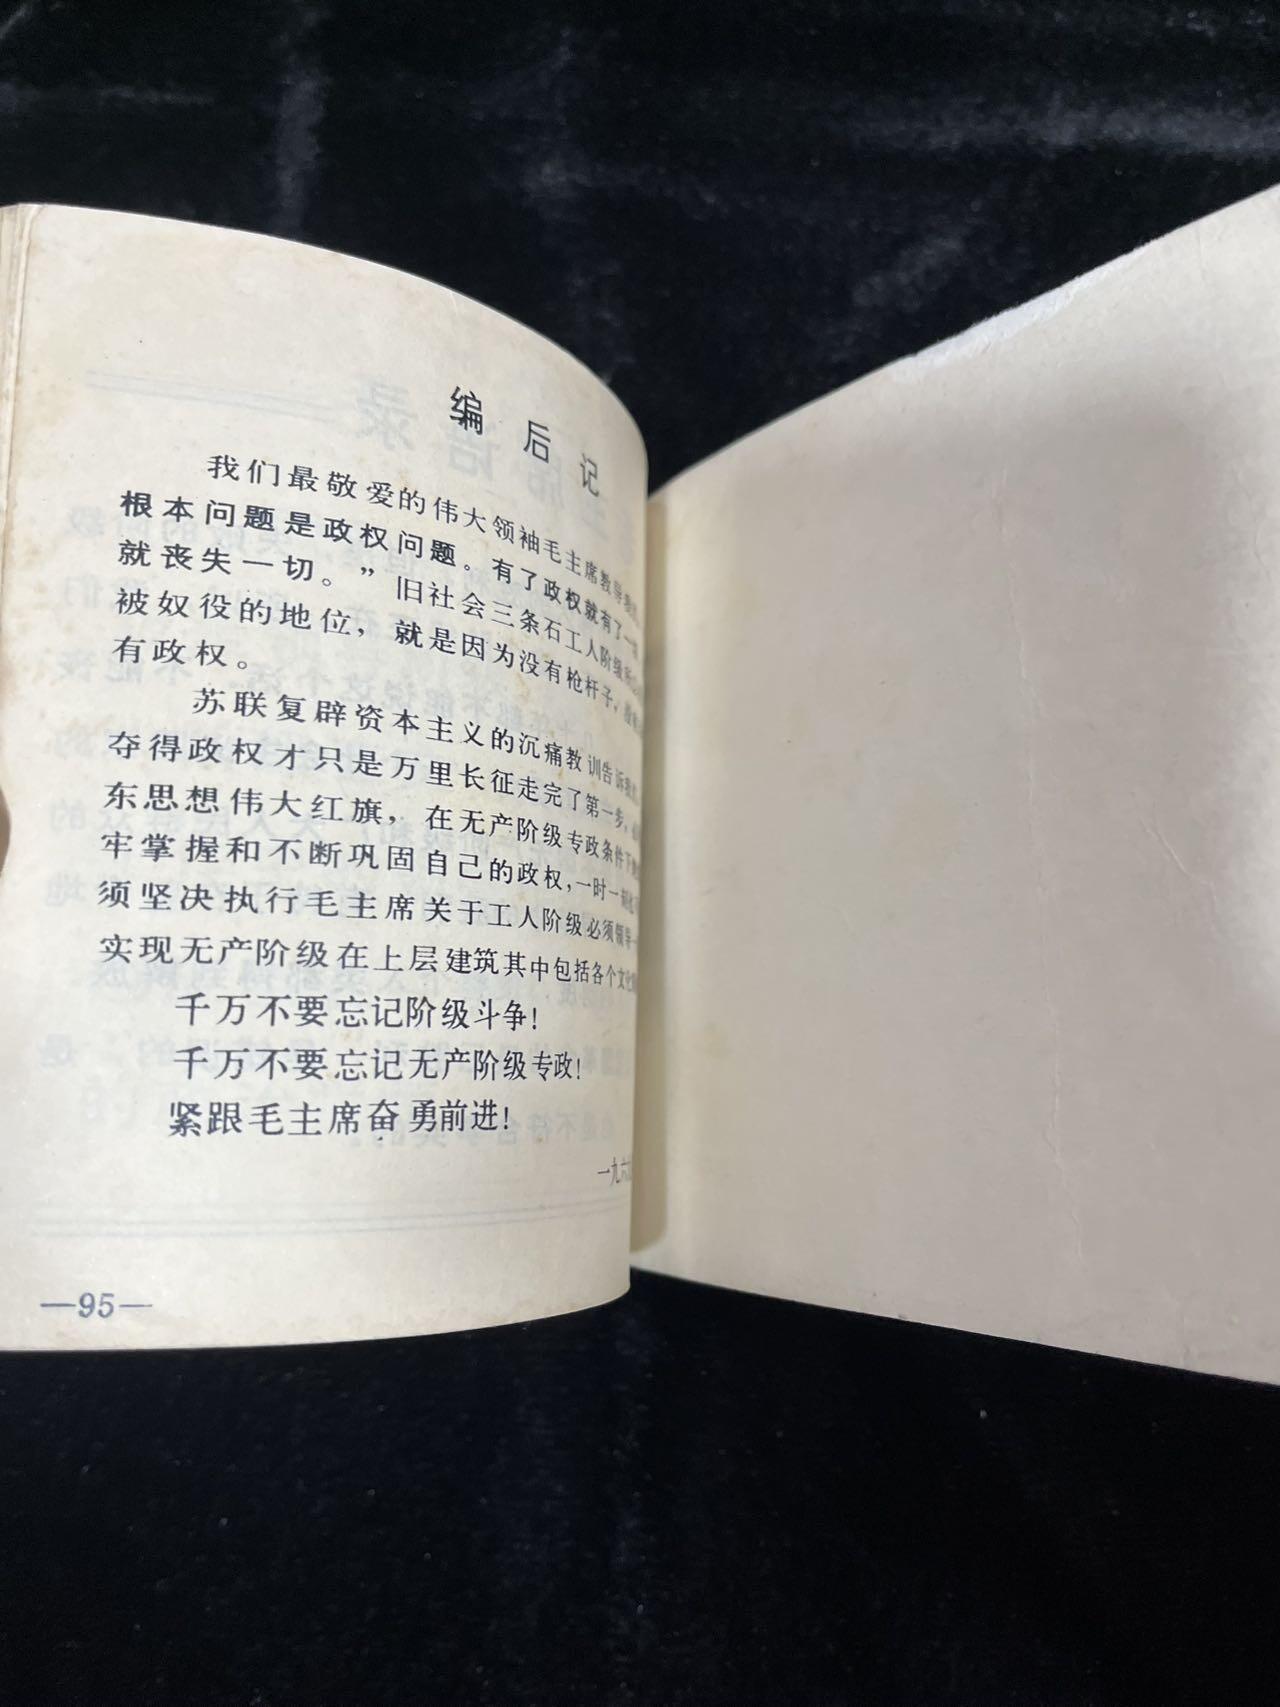 编后记
我们最敬爱的伟大领袖毛主席教导
根本问题是政权问题。有了政权就有了一
就丧失一切。”旧社会三条石工人阶级
被奴役的地位，就是因为没有枪杆子，
有政权。
苏联复辟资本主义的沉痛教训告诉
夺得政权才只是万里长征走完了第一步，
东思想伟大红旗，在无产阶级专政条件下
牢掌握和不断巩固自己的政权，一时一刻
须坚决执行毛主席关于工人阶级必须领导一
实现无产阶级在上层建筑其中包括各个文化
千万不要忘记阶级斗争！
千万不要忘记无产阶级专政！
紧跟毛主席奋勇前进！
一九六
—95—